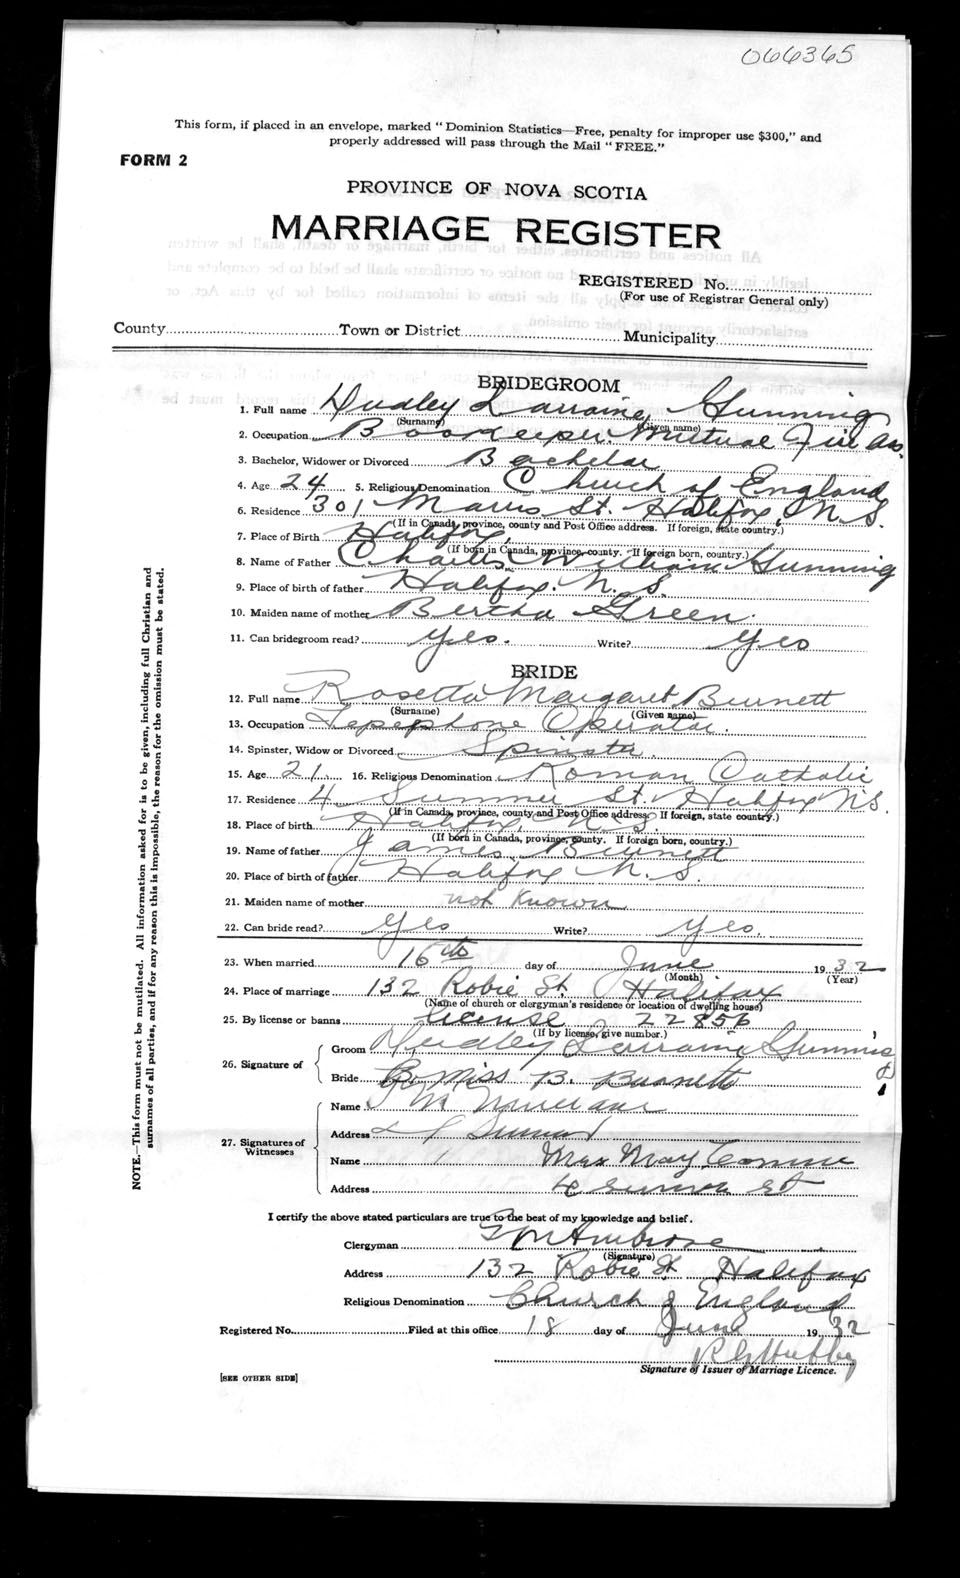 066365
This form, if placed in an envelope, marked "Dominion Statistics—Free, penalty for improper use $300," and
properly addressed will pass through the Mail "FREE."
FORM 2
PROVINCE OF NOVA SCOTIA
MARRIAGE REGISTER
REGISTERED No.
(For use of Registrar General only)
County Town or District Municipality
BRIDEGROOM
1. Full name Hudley Larraine Gunning
(Surname) (Given name)
2. Occupation Bookeeper Mutual Fire
3. Bachelor, Widower or Divorced Bachelor
4. Age 24 5. Religious Denomination Church of England
6. Residence 301 Morris St. Halifax, N.S.
(If in Canada, province, county and Post Office address. If foreign, state country.)
7. Place of Birth Halifax,
(If born in Canada, province, county. If foreign born, country.)
8. Name of Father Charles William Gunning
9. Place of birth of father Halifax. N.S.
10. Maiden name of mother Bertha Green.
11. Can bridegroom read? Yes. Write? Yes
BRIDE
12. Full name Rosetta Margaret Burnett
(Surname) (Given name)
13. Occupation Telephone Operator.
14. Spinster, Widow or Divorced Spinster.
15. Age 21 16. Religious Denomination Roman Catholic
17. Residence 4 Summer St. Halifax N.S.
(If in Canada, province, county and Post Office address. If foreign, state country.)
18. Place of birth Halifax, N.S.
(If born in Canada, province, county. If foreign born, country.)
19. Name of father James Burnett
20. Place of birth of father Halifax N.S.
21. Maiden name of mother not known
22. Can bride read? Yes Write? Yes.
23. When married 16th day of June 1932
(Month) (Year)
24. Place of marriage 132 Robie St Halifax
(Name of church or clergyman's residence or location of dwelling house)
25. By license or banns License 22856
(If by license, give number.)
26. Signature of
Groom Hudley Larraine Gunning
Bride Miss B. Burnett
27. Signatures of Witnesses
Name
Address
Name Mrs May
Address 4 st
I certify the above stated particulars are true to the best of my knowledge and belief.
Clergyman Ambrose
(Signature)
Address 132 Robie St Halifax
Religious Denomination Church of England
Registered No. Filed at this office 18 day of June 1932
Signature of Issuer of Marriage Licence.
[SEE OTHER SIDE]
NOTE.—This form must not be mutilated. All information asked for is to be given, including full Christian and
surnames of all parties, and if for any reason this is impossible, the reason for the omission must be stated.